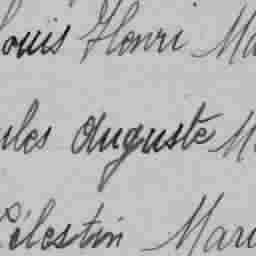 ouis Henri Ma
ules Auguste M
Célestin Mari